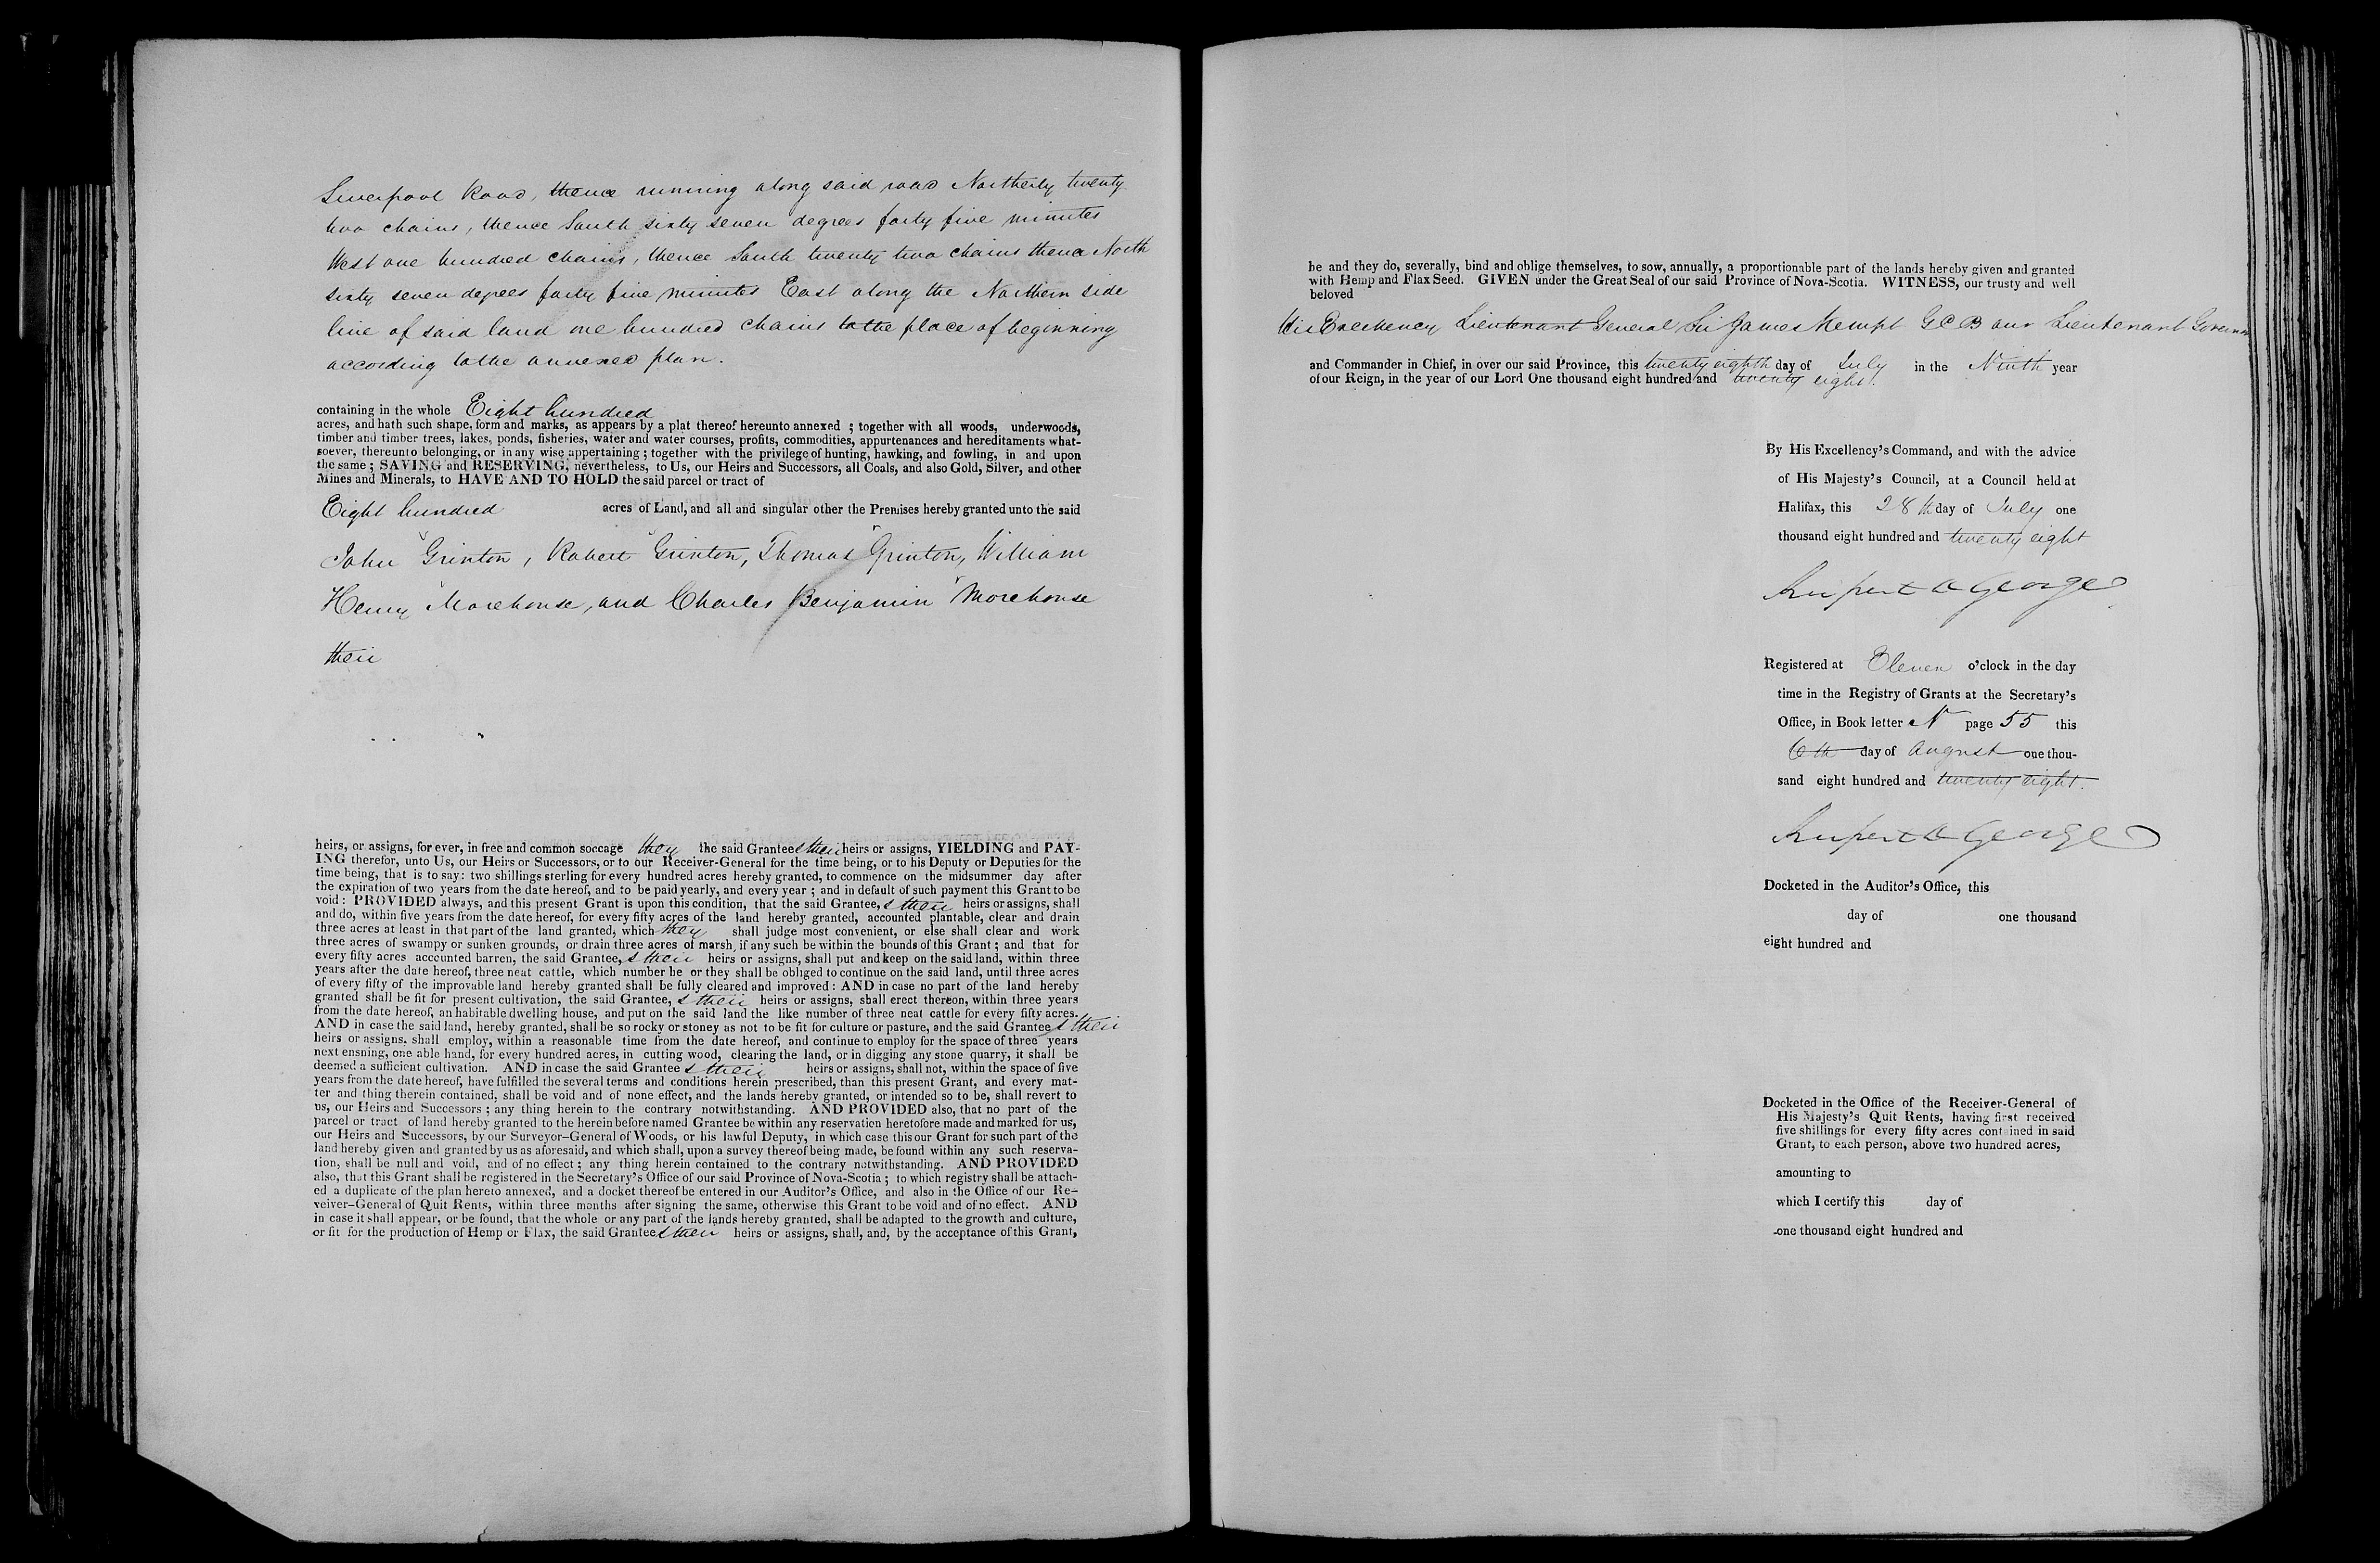 Liverpool Road, thence running along said road Northerly twenty
two chains, thence South sixty seven degrees forty five minutes
West one hundred chains, thence South twenty two chains thence North
sixty seven degrees forty five minutes East along the Northern side
line of said land one hundred chains to the place of beginning
according to the annexed plan.
containing in the whole Eight hundred
acres, and hath such shape, form and marks, as appears by a plat thereof hereunto annexed ; together with all woods, underwoods,
timber and timber trees, lakes, ponds, fisheries, water and water courses, profits, commodities, appurtenances and hereditaments what-
soever, thereunto belonging, or in any wise appertaining ; together with the privilege of hunting, hawking, and fowling, in and upon
the same ; SAVING and RESERVING, nevertheless, to Us, our Heirs and Successors, all Coals, and also Gold, Silver, and other
Mines and Minerals, to HAVE AND TO HOLD the said parcel or tract of
Eight hundred acres of Land, and all and singular other the Premises hereby granted unto the said
John Grinton, Robert Grinton, Thomas Grinton, William
Henry Morehouse, and Charles Benjamin Morehouse
their
heirs, or assigns, for ever, in free and common soccage they the said Grantees their heirs or assigns, YIELDING and PAY-
ING therefor, unto Us, our Heirs or Successors, or to our Receiver-General for the time being, or to his Deputy or Deputies for the
time being, that is to say: two shillings sterling for every hundred acres hereby granted, to commence on the midsummer day after
the expiration of two years from the date hereof, and to be paid yearly, and every year ; and in default of such payment this Grant to be
void : PROVIDED always, and this present Grant is upon this condition, that the said Grantee, s their heirs or assigns, shall
and do, within five years from the date hereof, for every fifty acres of the land hereby granted, accounted plantable, clear and drain
three acres at least in that part of the land granted, which they shall judge most convenient, or else shall clear and work
three acres of swampy or sunken grounds, or drain three acres of marsh, if any such be within the bounds of this Grant ; and that for
every fifty acres accounted barren, the said Grantee, s their heirs or assigns, shall put and keep on the said land, within three
years after the date hereof, three neat cattle, which number he or they shall be obliged to continue on the said land, until three acres
of every fifty of the improvable land hereby granted shall be fully cleared and improved : AND in case no part of the land hereby
granted shall be fit for present cultivation, the said Grantee, s their heirs or assigns, shall erect thereon, within three years
from the date hereof, an habitable dwelling house, and put on the said land the like number of three neat cattle for every fifty acres.
AND in case the said land, hereby granted, shall be so rocky or stoney as not to be fit for culture or pasture, and the said Grantee s their
heirs or assigns. shall employ, within a reasonable time from the date hereof, and continue to employ for the space of three years
next ensning, one able hand, for every hundred acres, in cutting wood, clearing the land, or in digging any stone quarry, it shall be
deemed a sufficient cultivation. AND in case the said Grantee s their heirs or assigns, shall not, within the space of five
years from the date hereof, have fulfilled the several terms and conditions herein prescribed, than this present Grant, and every mat-
ter and thing therein contained, shall be void and of none effect, and the lands hereby granted, or intended so to be, shall revert to
us, our Heirs and Successors ; any thing herein to the contrary notwithstanding. AND PROVIDED also, that no part of the
parcel or tract of land hereby granted to the herein before named Grantee be within any reservation heretofore made and marked for us,
our Heirs and Successors, by our Surveyor–General of Woods, or his lawful Deputy, in which case this our Grant for such part of the
land hereby given and granted by us as aforesaid, and which shall, upon a survey thereof being made, be found within any such reserva-
tion, shall be null and void, and of no effect ; any thing herein contained to the contrary notwithstanding. AND PROVIDED
also, that this Grant shall be registered in the Secretary's Office of our said Province of Nova-Scotia ; to which registry shall be attach-
ed a duplicate of the plan hereto annexed, and a docket thereof be entered in our Auditor's Office, and also in the Office of our Re-
veiver–General of Quit Rents, within three months after signing the same, otherwise this Grant to be void and of no effect. AND
in case it shall appear, or be found, that the whole or any part of the lands hereby granted, shall be adapted to the growth and culture,
or fit for the production of Hemp or Flax, the said Grantee s their heirs or assigns, shall, and, by the acceptance of this Grant,
he and they do, severally, bind and oblige themselves, to sow, annually, a proportionable part of the lands hereby given and granted
with Hemp and Flax Seed. GIVEN under the Great Seal of our said Province of Nova-Scotia. WITNESS, our trusty and well
beloved
His Excellency Lieutenant General Sir James Kempt G C B our Lieutenant Governor
and Commander in Chief, in over our said Province, this twenty eighth day of July in the Ninth year
of our Reign, in the year of our Lord One thousand eight hundred and twenty eight.
By His Excellency's Command, and with the advice
of His Majesty's Council, at a Council held at
Halifax, this 28th day of July one
thousand eight hundred and twenty eight
Rupert D George
Registered at Eleven o'clock in the day
time in the Registry of Grants at the Secretary's
Office, in Book letter N page 55 this
6th day of August one thou-
sand eight hundred and twenty eight.
Rupert D George
Docketed in the Auditor's Office, this
day of one thousand
eight hundred and
Docketed in the Office of the Receiver-General of
His Majesty's Quit Rents, having first received
five shillings for every fifty acres cont ined in said
Grant, to each person, above two hundred acres,
amounting to
which I certify this day of
one thousand eight hundred and